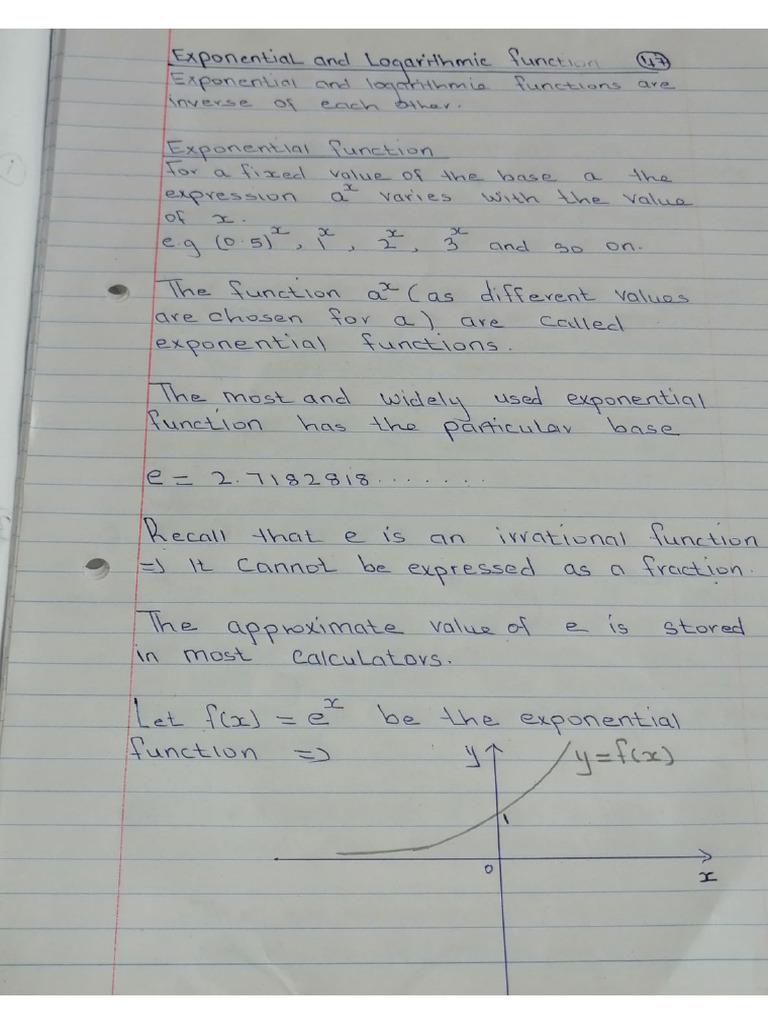 Exponential and Logarithmic function 47
Exponential and logarithmic functions are
inverse of each other.
Exponential function
For a fixed value of the base a the
expression aˣ varies with the value
of x.
e.g (0.5)ˣ, 1ˣ, 2ˣ, 3ˣ and so on.
The function aˣ (as different values
are chosen for a) are called
exponential functions.
The most and widely used exponential
function has the particular base
e = 2.7182818........
Recall that e is an irrational function
=> It cannot be expressed as a fraction.
The approximate value of e is stored
in most calculators.
Let f(x) = eˣ be the exponential
function =>
y
y=f(x)
1
0
x